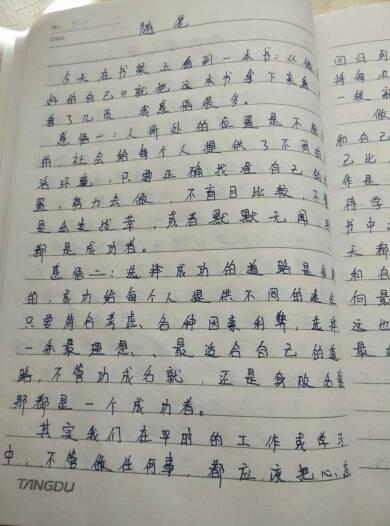 No.
Date
随笔
今天在书架上看到一本书:从做
好的自己,就把这本书拿下来看,
看了几页,我感悟很多。
感悟一:人所处的位置是不
的,社会给每个人提供了不同的
活环境,只要正确找准自己的
置,努力去做,不盲目比较,不
是出类拔萃,或者默默无闻,
都是成功者。
感悟二:选择成功的道路是
的,成功给每个人提供不同的
只要综合考虑、各种因素利弊,选择
一条最理想、、最适合自己的道
路,不管功成名就,还是身败名
那都是一个成功者。
其实我们在平时的工作或学习
中,不管做任何事,都应该把心态
TANGDU
回归到
将每次
一级
做
和自己
己比
作是
待学
书中,
天都
和自
何是
这也
最